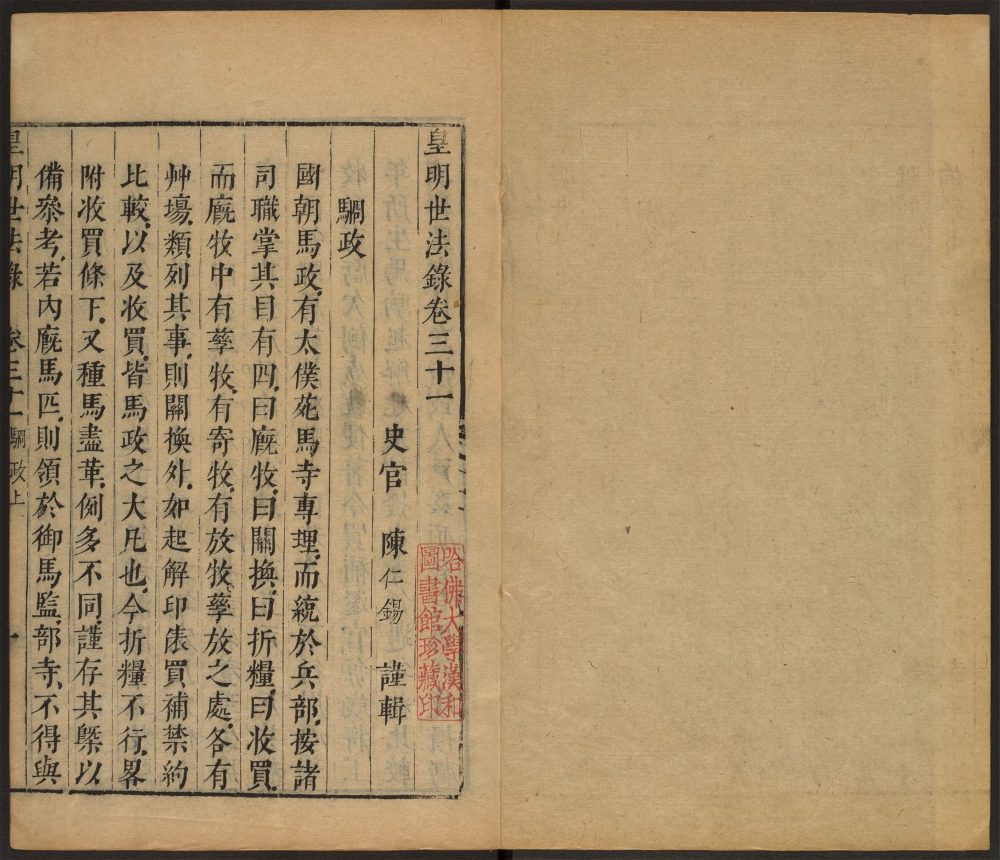 皇明世法錄卷三十一
史官 陳仁錫 謹輯
駉政
國朝馬政有太僕苑馬寺專理而統於兵部按諸
司職掌其目有四曰廐牧曰關換曰折糧曰收買
而廐牧中有孳牧有寄牧有放牧孳放之處各有
艸塲類列其事則關換外如起解印俵買補禁約
比較以及收買皆馬政之大凡也今折糧不行畧
附收買條下又種馬盡革例多不同謹存其槩以
備叅考若內廐馬匹則領於御馬監部寺不得與
皇明世法錄 卷三十一 駉政上 一
哈佛大學漢和
圖書館珍藏印